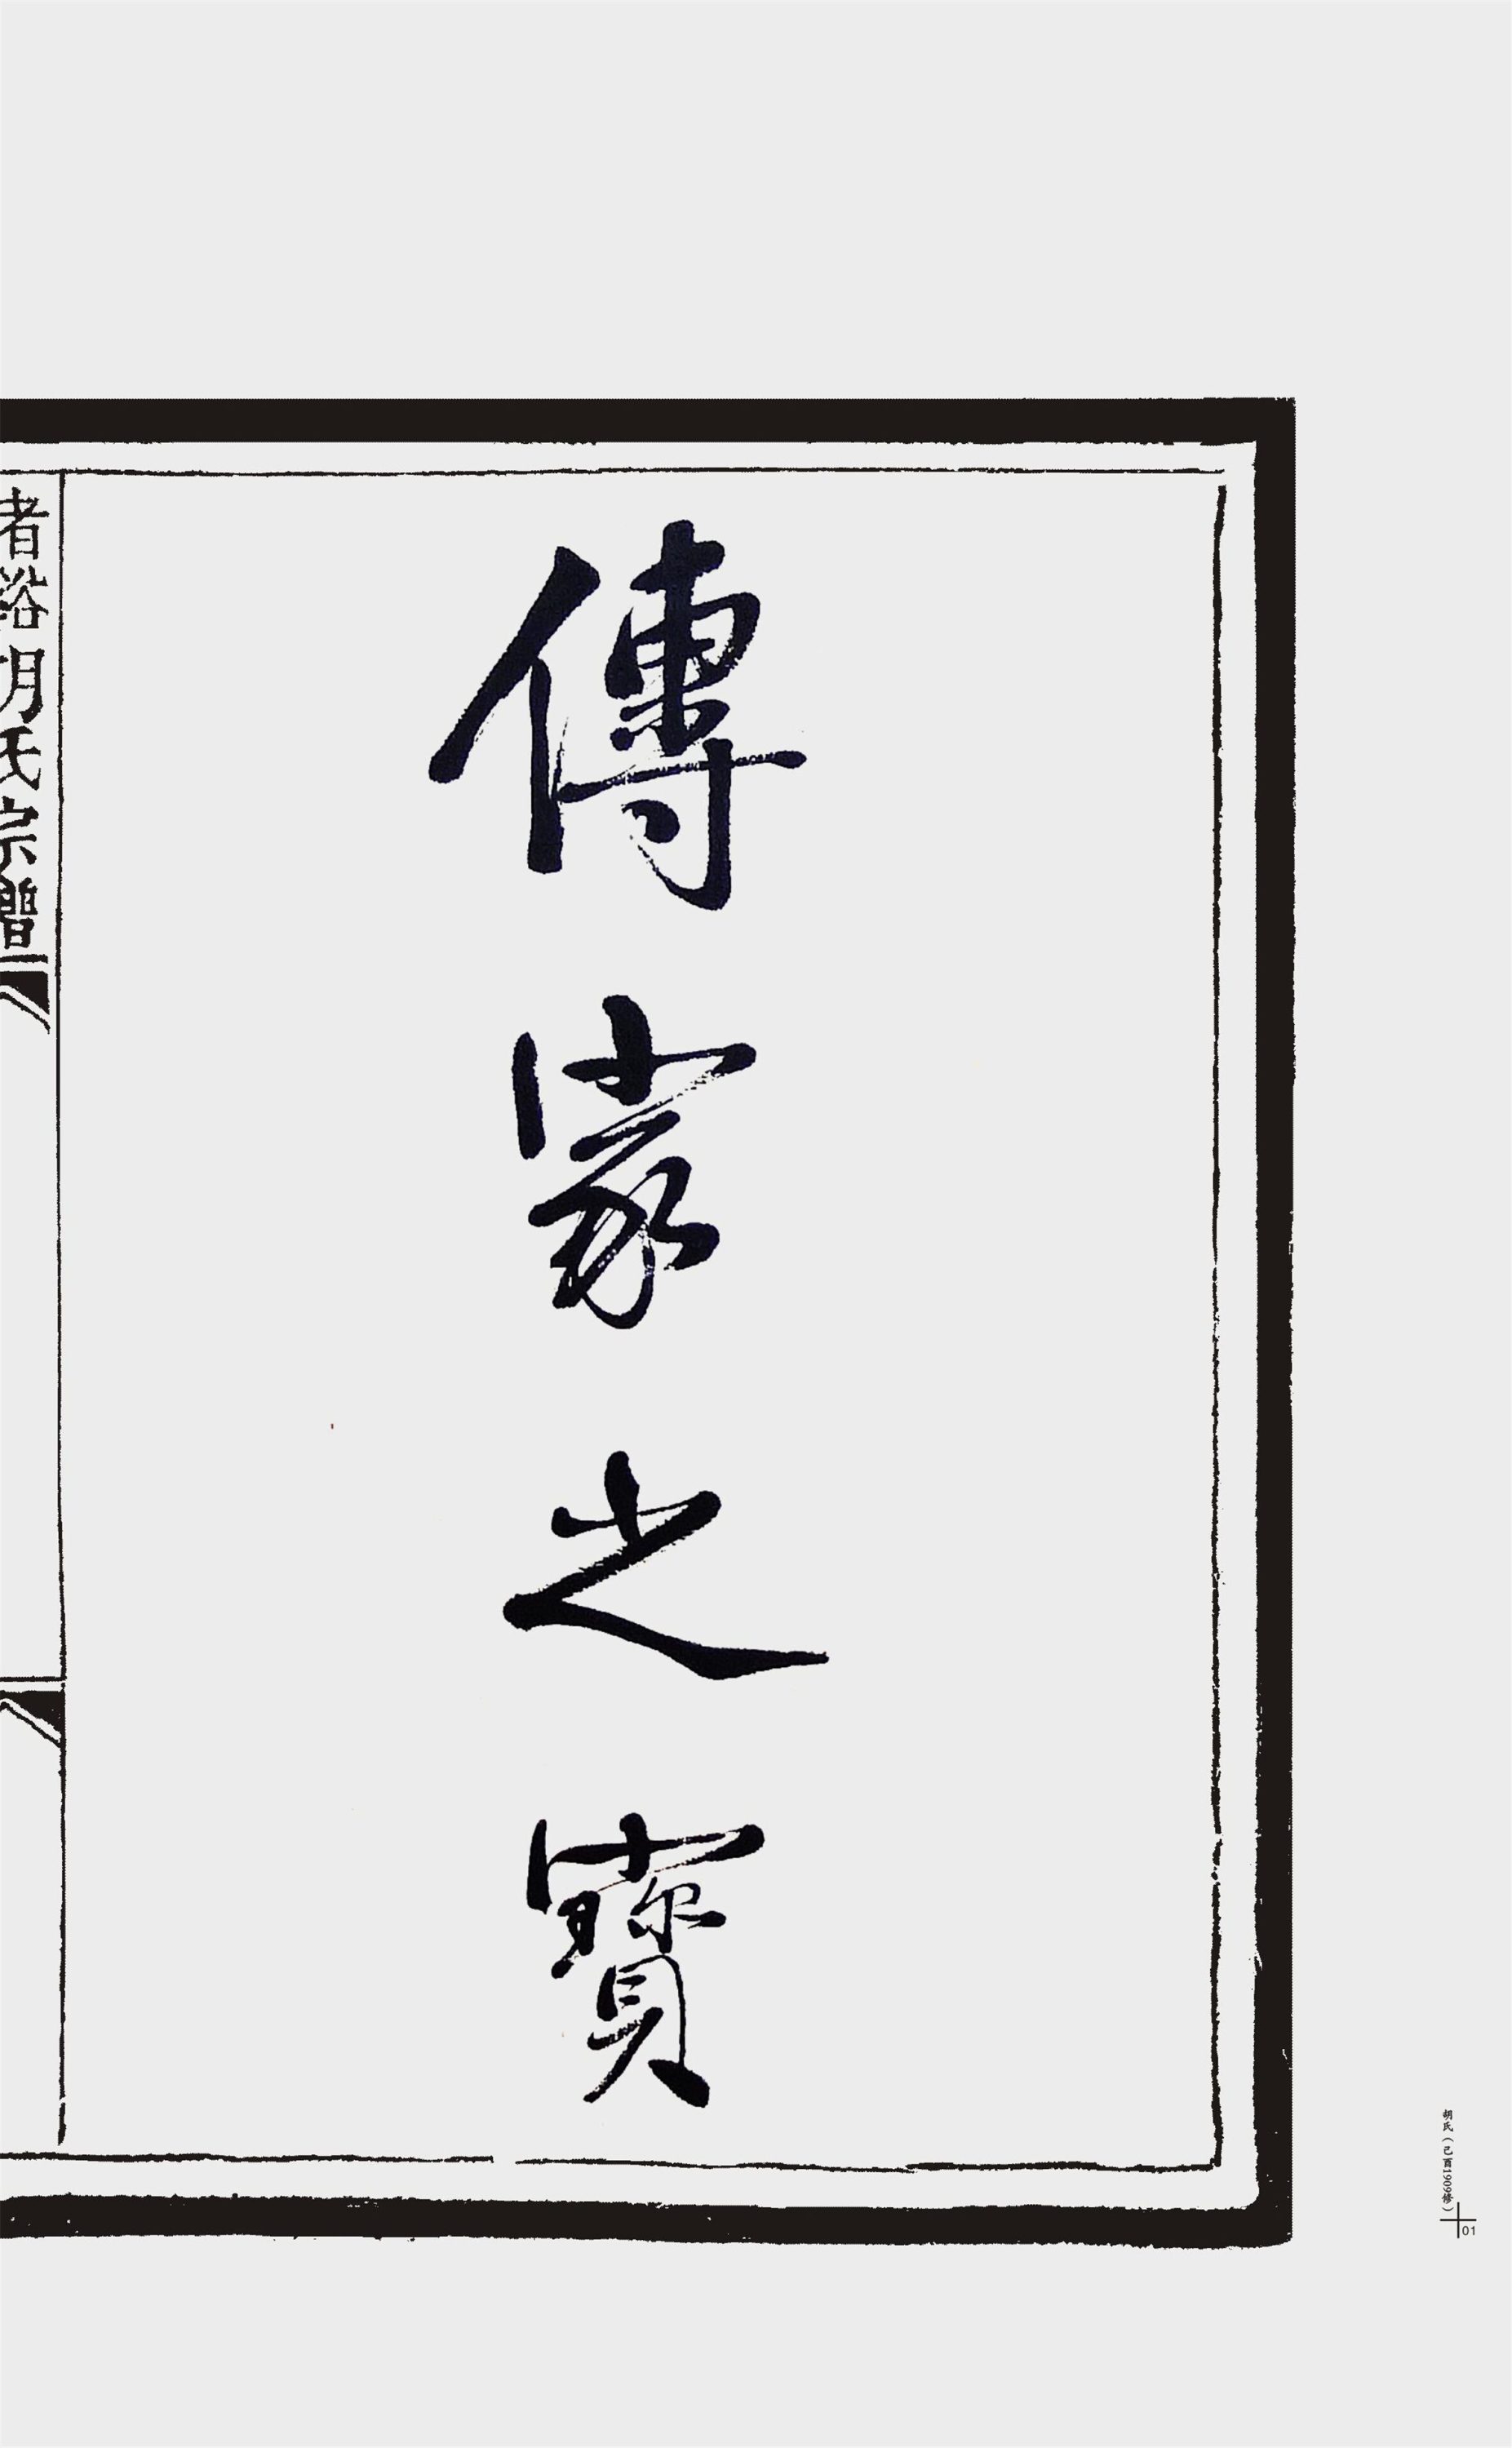 傳家之寶
胡氏宗譜
胡氏（己酉1909修）
01